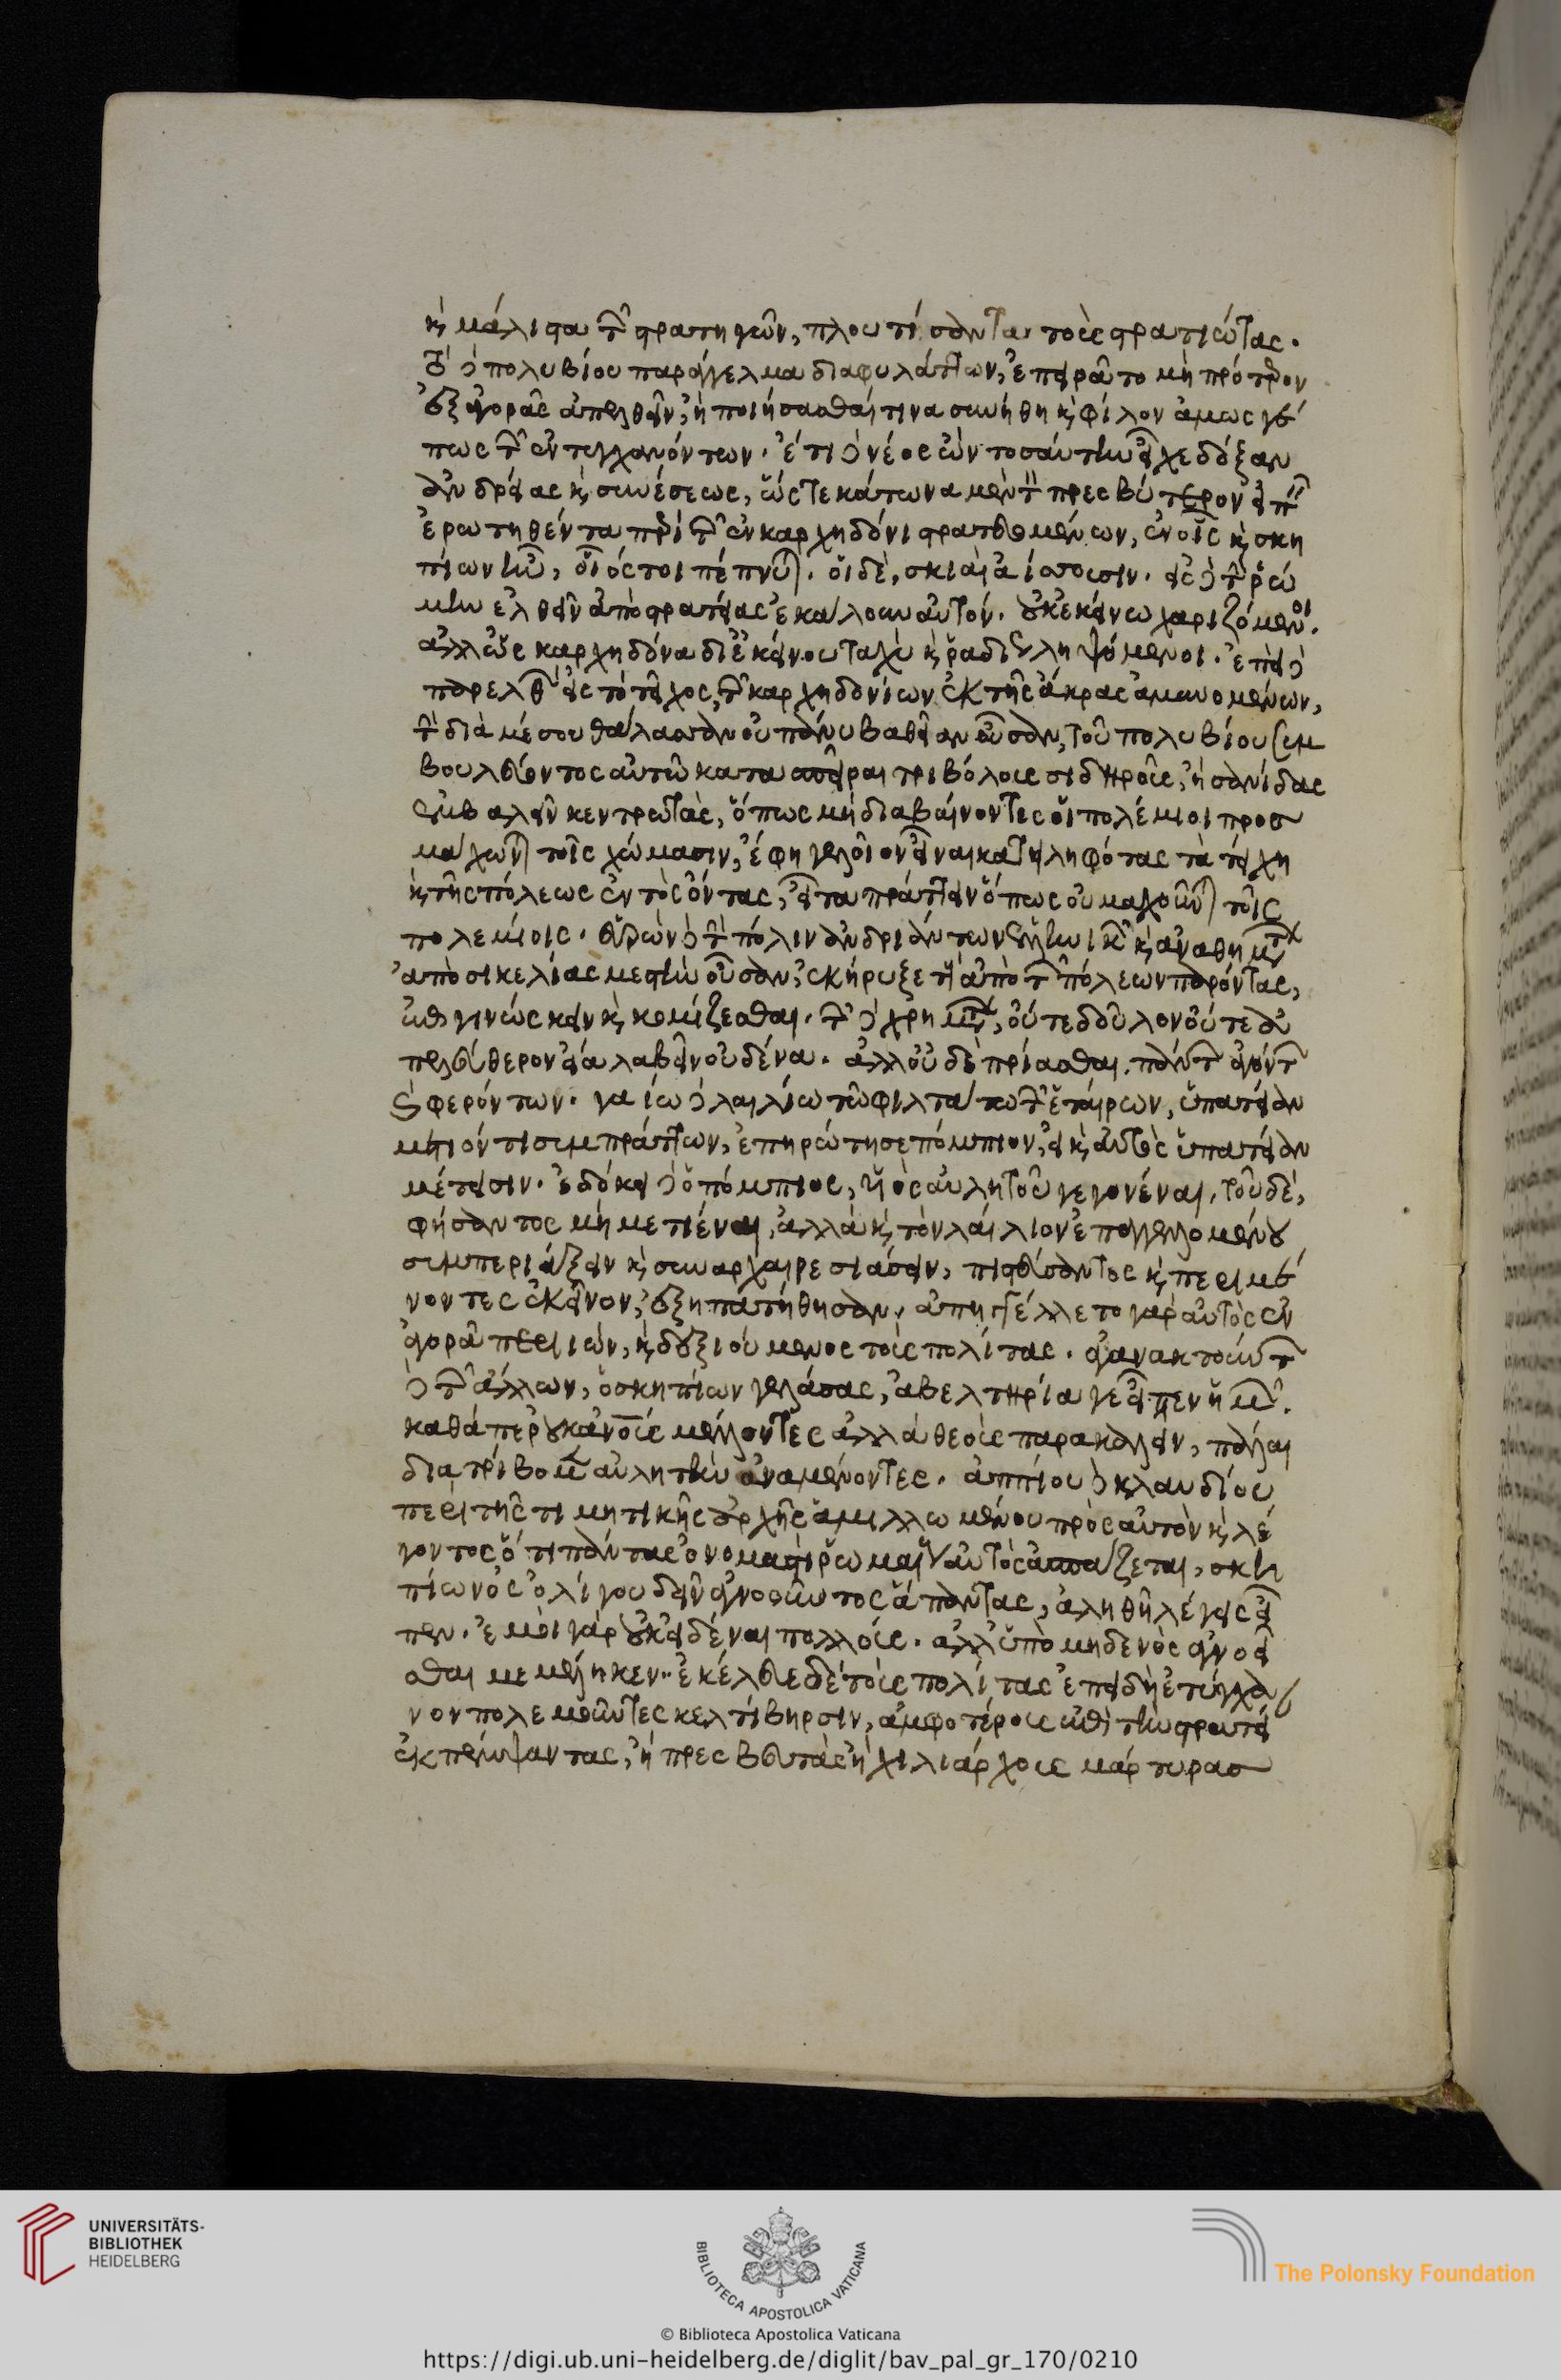 καὶ μάλιστα τῶν στρατηγῶν, πλουτίσαντα τοὺς στρατιώτας.
τὸ δὲ πολυβίου παράγγελμα διαφυλάττων, ἐπειρᾶτο μὴ πρότερον
ἐξ ἀγορᾶς ἀπελθεῖν, ἢ ποιήσασθαί τινα συνήθη καὶ φίλον ἁμωσγέ
πως τῶν ἐντυγχανόντων. ἔτι δὲ νέος ὢν τοσαύτην εἶχε δόξαν
ἀνδρείας καὶ συνέσεως, ὥστε κάτωνα μὲν τὸν πρεσβύτερον εἰπεῖν
ἐρωτηθέντα περὶ τῶν ἐν καρχηδόνι στρατευομένων, ἐν οἷς καὶ σκη
πίων ἦν, οἶος τοι πέπνυται. οἱ δὲ, σκιαὶ ἀίσσουσιν. εἰς δὲ τὴν ῥώ
μην ἐλθεῖν ἀπὸ στρατείας ἐκάλουν αὐτόν. οὐκ ἐκείνω χαριζόμενοι.
ἀλλ' ὡς καρχηδόνα δι' ἐκείνου ταχὺ καὶ ῥαδίως ληψόμενοι. ἐπεὶ δὲ
παρελθὼν εἰς τὸ τεῖχος, τῶν καρχηδονίων ἐκ τῆς ἄκρας ἀμυνομένων,
τὴν διὰ μέσου θάλασσαν οὐ πάνυ βαθεῖαν οὖσαν, τοῦ πολυβίου συμ
βουλεύοντος αὐτῶ κατασπεῖραι τριβόλους σιδηροῦς, ἢ σανίδας
ἐμβαλεῖν κεντρωτὰς, ὅπως μὴ διαβαίνοντες οἱ πολέμιοι προσ
μάχωνται τοῖς χώμασιν, ἔφη γελοῖον εἶναι κατειληφότας τὰ τείχη
καὶ τῆς πόλεως ἐντὸς ὄντας, εἶτα πράττειν ὅπως οὐ μαχοῦνται τοῖς
πολεμίοις. εὑρὼν δὲ τὴν πόλιν ἀνδριάντων ἑλληνικῶν καὶ ἀναθημάτων
ἀπὸ σικελίας μεστὴν οὖσαν, ἐκήρυξε τοὺς ἀπὸ τῶν πόλεων παρόντας,
ἐπιγινώσκειν καὶ κομίζεσθαι. τῶν δὲ χρημάτων, οὔτε δοῦλον οὔτε ἀ
πελεύθερον εἴα λαβεῖν οὐδένα. ἀλλ' οὐδὲ πρίασθαι. πάντων ἀγόντων
καὶ φερόντων. γαίω δὲ λαιλίω τῶ φιλτάτω τῶν ἑταίρων, ὑπατείαν
μετιόντι συμπράττων, ἐπηρώτησε πόμπιον, εἰ καὶ αὐτὸς ὑπατείαν
μέτεισιν. ἐδόκει δὲ ὁ πόμπιος, υἱὸς αὐλητοῦ γεγονέναι. τοῦ δὲ,
φήσαντος μὴ μετιέναι, ἀλλὰ καὶ τὸν λαίλιον ἐπαγγελλομένου
συμπεριάξειν καὶ συναρχαιρεσιάσειν, πιστεύσαντες καὶ περιμέ
νοντες ἐκεῖνον, ἐξηπατήθησαν. ἀπηγγέλλετο γὰρ αὐτὸς ἐν
ἀγορᾶ περιιὼν, καὶ δεξιούμενος τοὺς πολίτας. ἀγανακτούντων
δὲ τῶν ἄλλων, ὁ σκηπίων γελάσας, ἀβελτηρία γε εἶπεν ἡμῶν.
καθάπερ οὐκ ἀνθρώπους μέλλοντες ἀλλὰ θεοὺς παρακαλεῖν, πάλαι
διατρίβομεν αὐλητὴν ἀναμένοντες. ἀππίου δὲ κλαυδίου
περὶ τῆς τιμητικῆς ἀρχῆς ἁμιλλωμένου πρὸς αὐτὸν καὶ λέ
γοντος ὅτι πάντας ὀνομαστὶ ῥωμαίους αὐτὸς ἀσπάζεται, σκη
πίωνος ὀλίγου δεῖν ἀγνοοῦντος ἅπαντας, ἀληθῆ λέγεις εἶ
πεν. ἐμοὶ γὰρ οὐκ εἰδέναι πολλούς. ἀλλ' ὑπὸ μηδενὸς ἀγνοεῖ
σθαι μεμέληκεν. ἐκέλευε δὲ τοὺς πολίτας ἐπειδὴ ἐτύγχα
νον πολεμοῦντες κελτίβηρσιν, ἀμφοτέρους ἐπὶ τὴν στρατεί
ἐκπέμψαντας, ἢ πρεσβευτὰς ἢ χιλιάρχους μάρτυρας
UNIVERSITÄTS-
BIBLIOTHEK
HEIDELBERG
BIBLIOTECA APOSTOLICA VATICANA
The Polonsky Foundation
© Biblioteca Apostolica Vaticana
https://digi.ub.uni-heidelberg.de/diglit/bav_pal_gr_170/0210